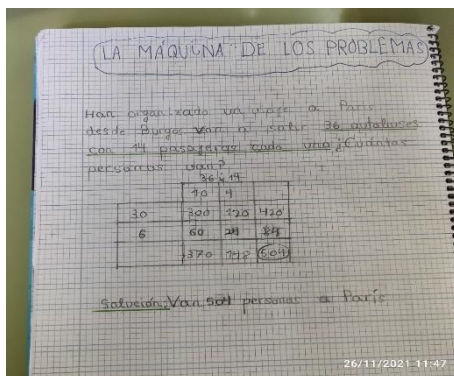 LA MÁQUINA DE LOS PROBLEMAS
Han organizado un viaje a Paris
desde Burgos van a salir 36 autobuses
con 14 pasajeros cada uno ¿Cuántas
personas van?
36 x 14
10 4
30 300 120 420
6 60 24 84
504
Solución: Van 504 personas a París
26/11/2021 11:47